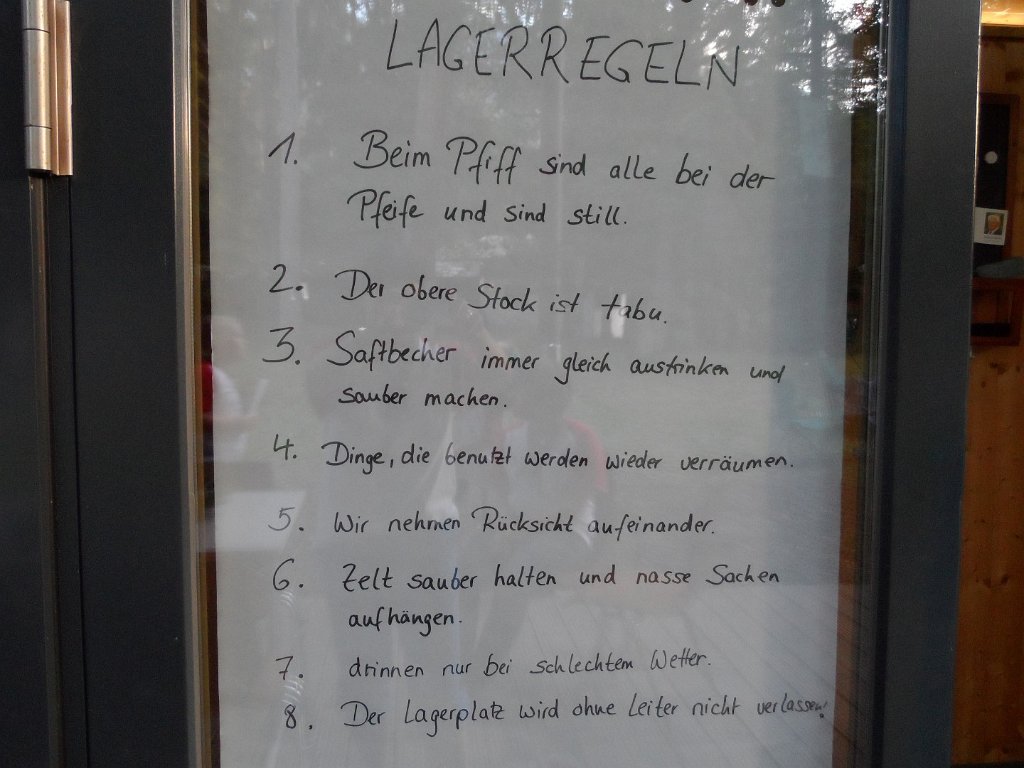 LAGERREGELN
1. Beim Pfiff sind alle bei der
Pfeife und sind still.
2. Der obere Stock ist tabu.
3. Saftbecher immer gleich austrinken und
sauber machen.
4. Dinge, die benutzt werden wieder verräumen.
5. Wir nehmen Rücksicht aufeinander.
6. Zelt sauber halten und nasse Sachen
aufhängen.
7. drinnen nur bei schlechtem Wetter.
8. Der Lagerplatz wird ohne Leiter nicht verlassen!